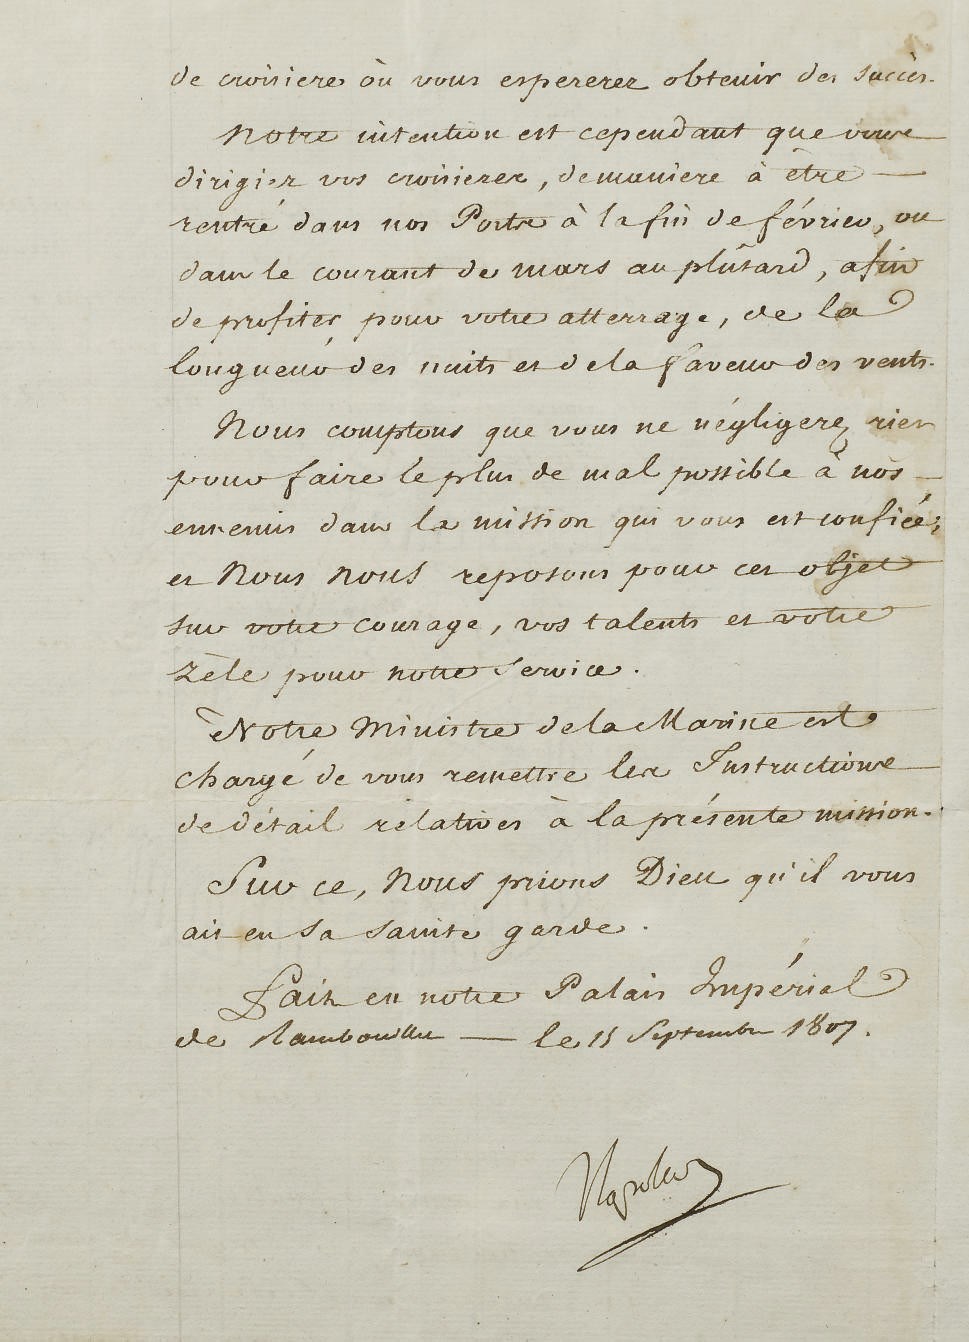 de croisiere où vous espererez obtenir des succès.
Notre intention est cependant que vous
dirigiez vos croisieres, de maniere à être
rentré dans nos Ports à la fin de février, ou
dans le courant de mars au plûtard, afin
de profiter pour votre atterrage, de la
longueur des nuits et de la faveur des vents.
Nous comptons que vous ne négligerez rien
pour faire le plus de mal possible à nos
ennemis dans la mission qui vous est confiée;
et Nous Nous reposons pour cet objet
sur votre courage, vos talents et votre
zèle pour notre service.
Notre Ministre de la Marine est
chargé de vous remettre les Instructions
de détail relatives à la présente mission.
Sur ce, Nous prions Dieu qu'il vous
ait en Sa sainte garde.
Fait en notre Palais Impérial
de Rambouillet — le 15 Septembre 1807.
Napoleon